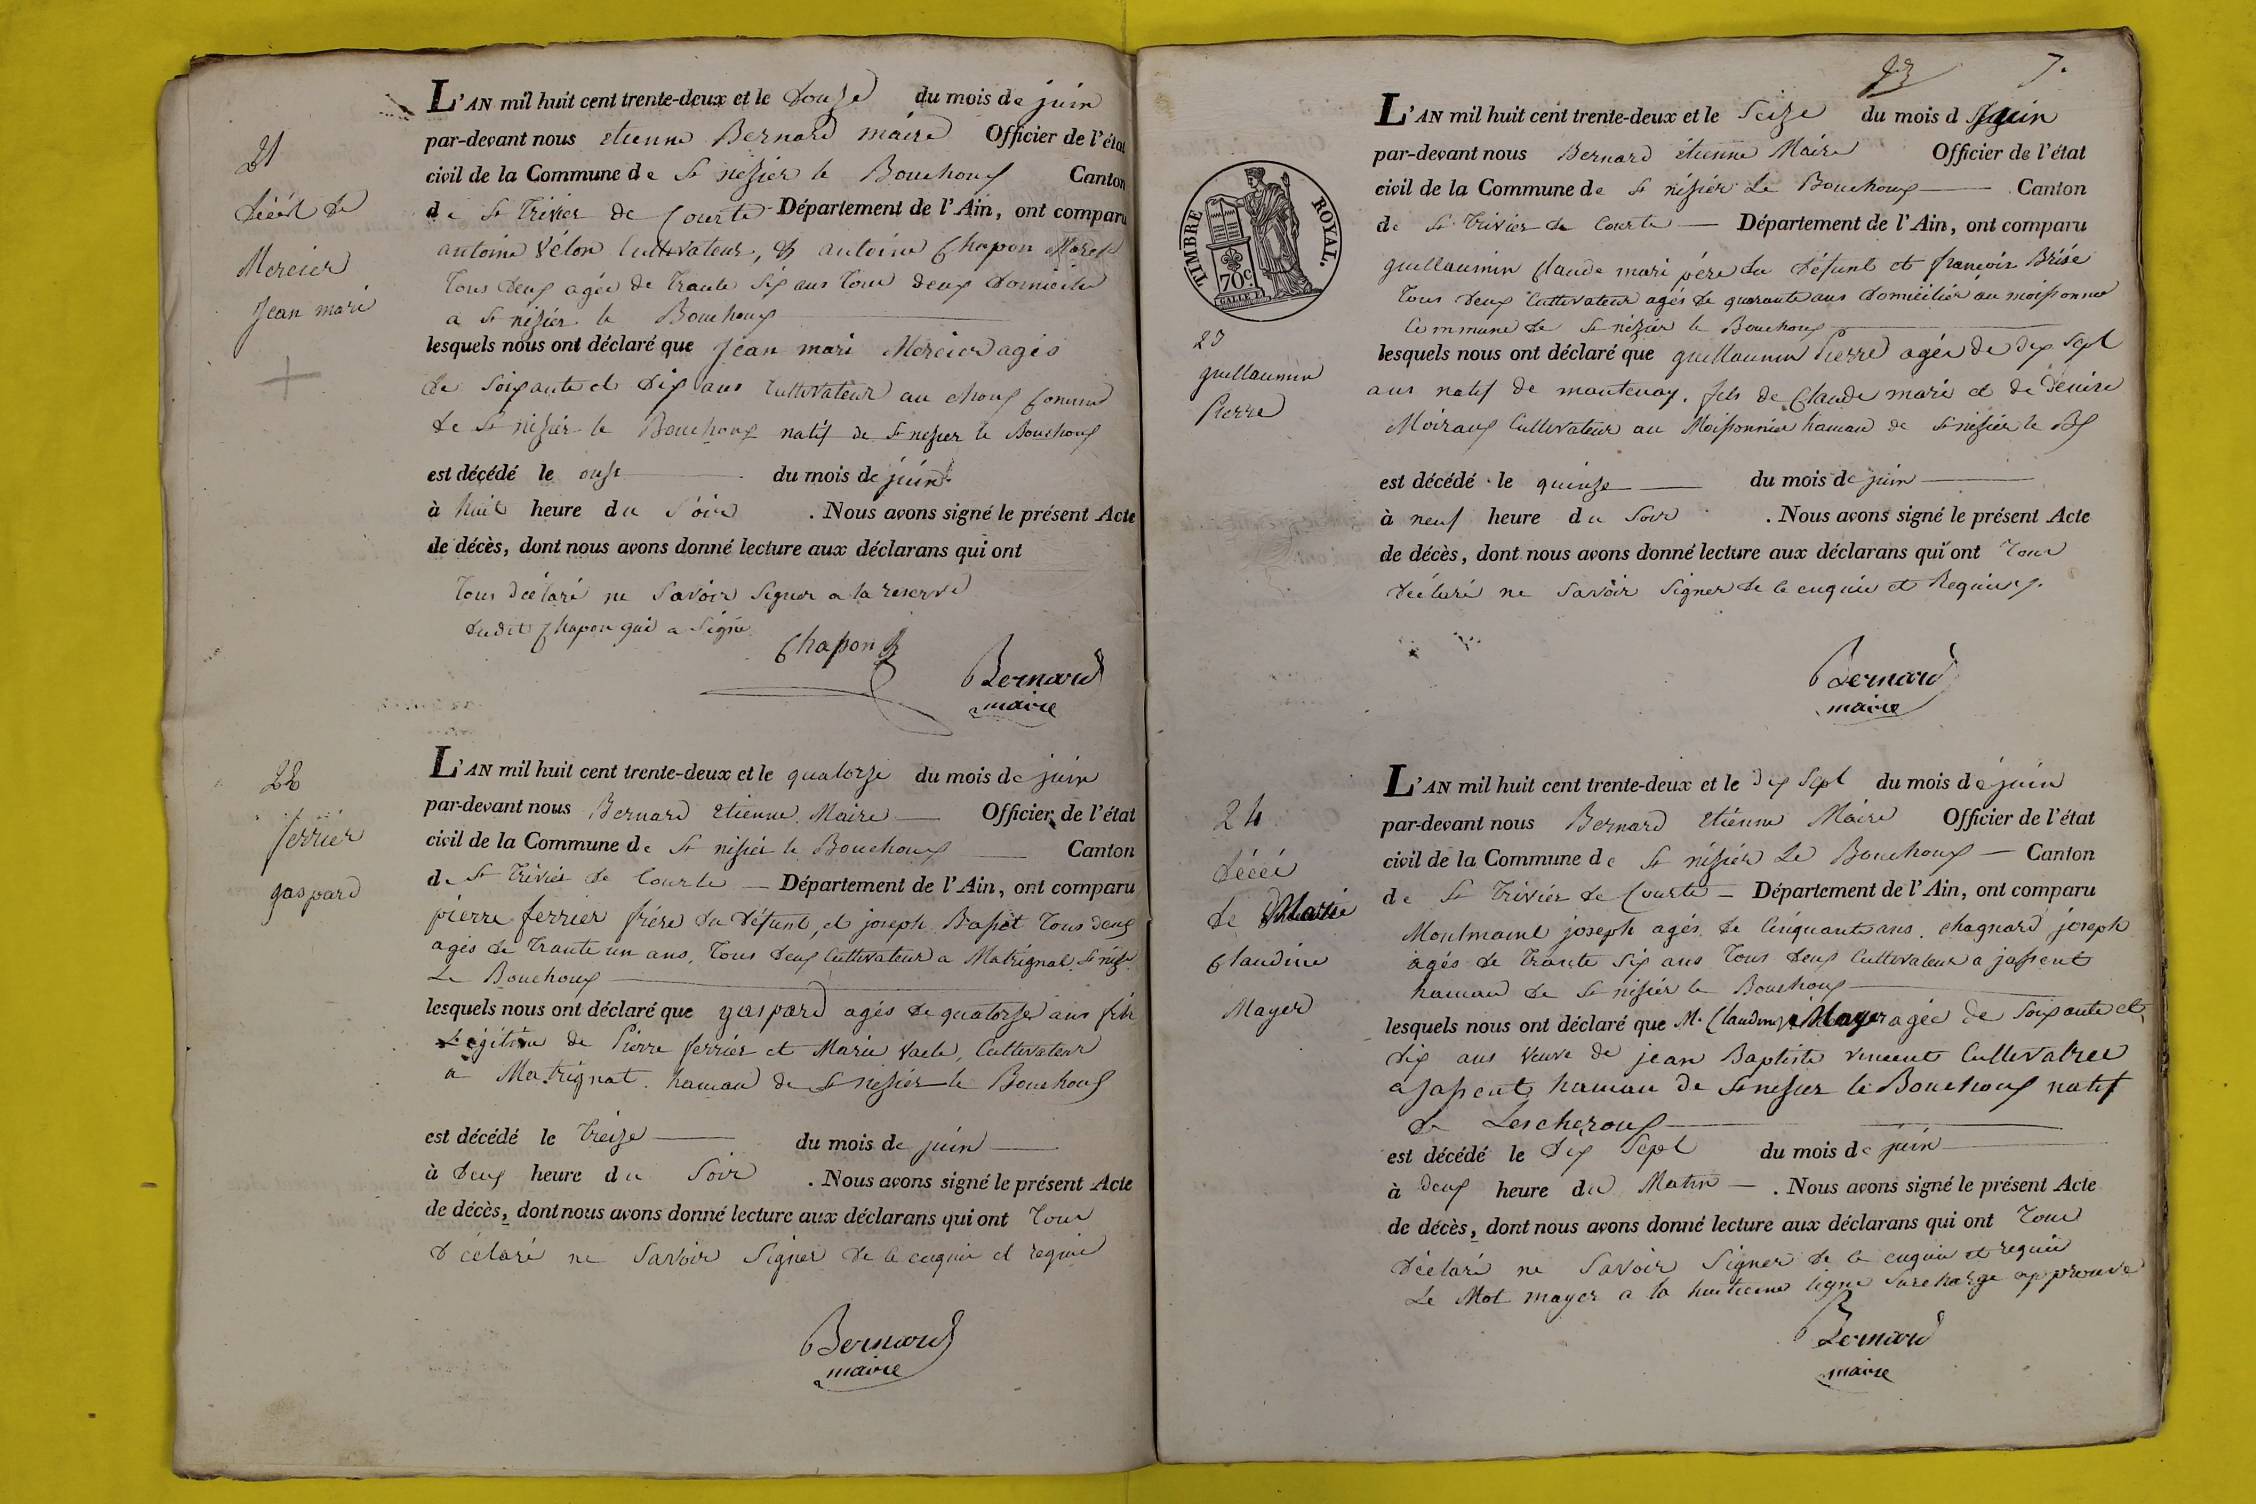 21
décès de
Mercier
Jean mari
L'AN mil huit cent trente-deux et le douze du mois de juin
par-devant nous etienne Bernard maire Officier de l'état
civil de la Commune de St nizier le Bouchoux Canton
de St Trivier de Courte Département de l'Ain, ont comparu
antoine Vélon Cultivateur, & antoine Chapon
Tous deux agés de trante six ans tous deux domicilié
a St nizier le Bouchoux
lesquels nous ont déclaré que Jean mari Mercier agés
de soixante et dix ans Cultivateur au choux Comune
de St nizier le Bouchoux natif de St nizier le Bouchoux
est décédé le onze du mois de juin
à huit heure du Soir . Nous avons signé le présent Acte
de décès, dont nous avons donné lecture aux déclarans qui ont
Tous déclaré ne savoir signer a la reserve
dudit Chapon qui a signé
Chapon
Bernard
maire
22
ferrier
gaspard
L'AN mil huit cent trente-deux et le quatorze du mois de juin
par-devant nous Bernard etienne Maire Officier de l'état
civil de la Commune de St nizier le Bouchoux Canton
de St Trivier de Courte Département de l'Ain, ont comparu
pierre ferrier frère du défunt, et joseph Basset Tous deux
agés de trante un ans, Tous deux Cultivateur a Matrignat St nizier
Le Bouchoux
lesquels nous ont déclaré que gaspard agés de quatorze ans fils
Legitime de Pierre ferrier et Marie Vacle, Cultivateur
a Matrignat hamau de St nizier le Bouchoux
est décédé le treize du mois de juin
à deux heure du Soir . Nous avons signé le présent Acte
de décès, dont nous avons donné lecture aux déclarans qui ont Tous
déclaré ne savoir signer de ce enquis et requis
Bernard
maire
7.
TIMBRE ROYAL.
70 c.
23
guillaumin
Pierre
L'AN mil huit cent trente-deux et le seize du mois d Juin
par-devant nous Bernard étienne Maire Officier de l'état
civil de la Commune de St nizier Le Bouchoux Canton
de St Trivier de Courte Département de l'Ain, ont comparu
guillaumin Claude mari père du défunt et françois Brisé
Tous deux Cultivateur agés de quarante ans domicilier au moissonnier
Commune de St nizier le Bouchoux
lesquels nous ont déclaré que guillaumin Pierre agés de dix sept
ans natif de mantenay, fils de Claude marie et de denise
Moiraux Cultivateur au Moissonnier hamau de St nizier le Bx
est décédé le quinze du mois de juin
à neuf heure du Soir . Nous avons signé le présent Acte
de décès, dont nous avons donné lecture aux déclarans qui ont Tous
déclaré ne savoir signer de ce enquis et Requis
Bernard
maire
24
décé
de Marie
Claudine
Mayer
L'AN mil huit cent trente-deux et le dix sept du mois de juin
par-devant nous Bernard etienne Maire Officier de l'état
civil de la Commune de St nizier Le Bouchoux Canton
de St Trivier de Courte Département de l'Ain, ont comparu
Montmain joseph agés de cinquante ans, chagnard joseph
agés de trante six ans Tous deux Cultivateur a jassent
hamau de St nizier le Bouchoux
lesquels nous ont déclaré que M. Claudine Mayer agée de soixante et
dix ans veuve de jean Baptiste vincent Cultivatrice
a jassent hamau de St nizier le Bouchoux natif
de Lescheroux
est décédé le dix sept du mois de juin
à deux heure du Matin . Nous avons signé le présent Acte
de décès, dont nous avons donné lecture aux déclarans qui ont Tous
déclaré ne savoir signer de ce enquis et requis
Le Mot mayer a la huitieme ligne surcharge approuvé
Bernard
maire